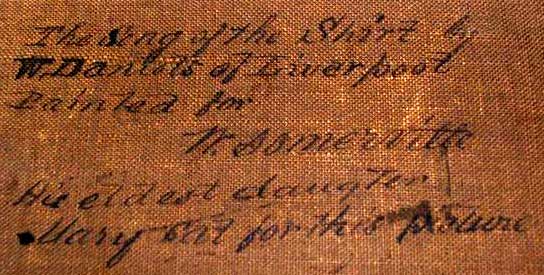 The Song of the Shirt by
W. Daniels of Liverpool
Painted for
W. Somerville
His eldest daugter
Mary sat for this picture